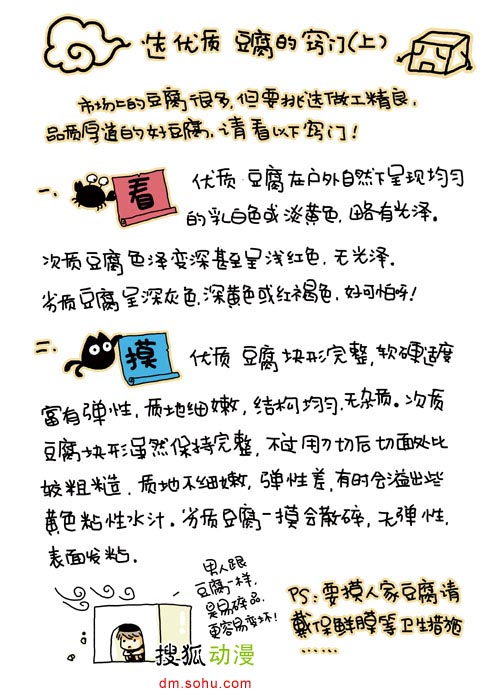 选优质豆腐的窍门(上)
市场上的豆腐很多,但要挑选做工精良,
品质厚道的好豆腐,请看以下窍门!
一、看 优质豆腐在户外自然下呈现均匀
的乳白色或淡黄色,略有光泽。
次质豆腐色泽变深甚至呈浅红色,无光泽。
劣质豆腐呈深灰色,深黄色或红褐色,好可怕呀!
二、摸 优质豆腐块形完整,软硬适度
富有弹性,质地细嫩,结构均匀,无杂质。次质
豆腐块形虽然保持完整,不过用刀切后切面处比
较粗糙,质地不细嫩,弹性差,有时会溢出些
黄色粘性水汁。劣质豆腐一摸会散碎,无弹性,
表面发粘.
男人跟
豆腐一样,
是易碎品,
更容易变坏!
PS:要摸人家豆腐请
戴保鲜膜等卫生措施
……
搜狐动漫
dm.sohu.com